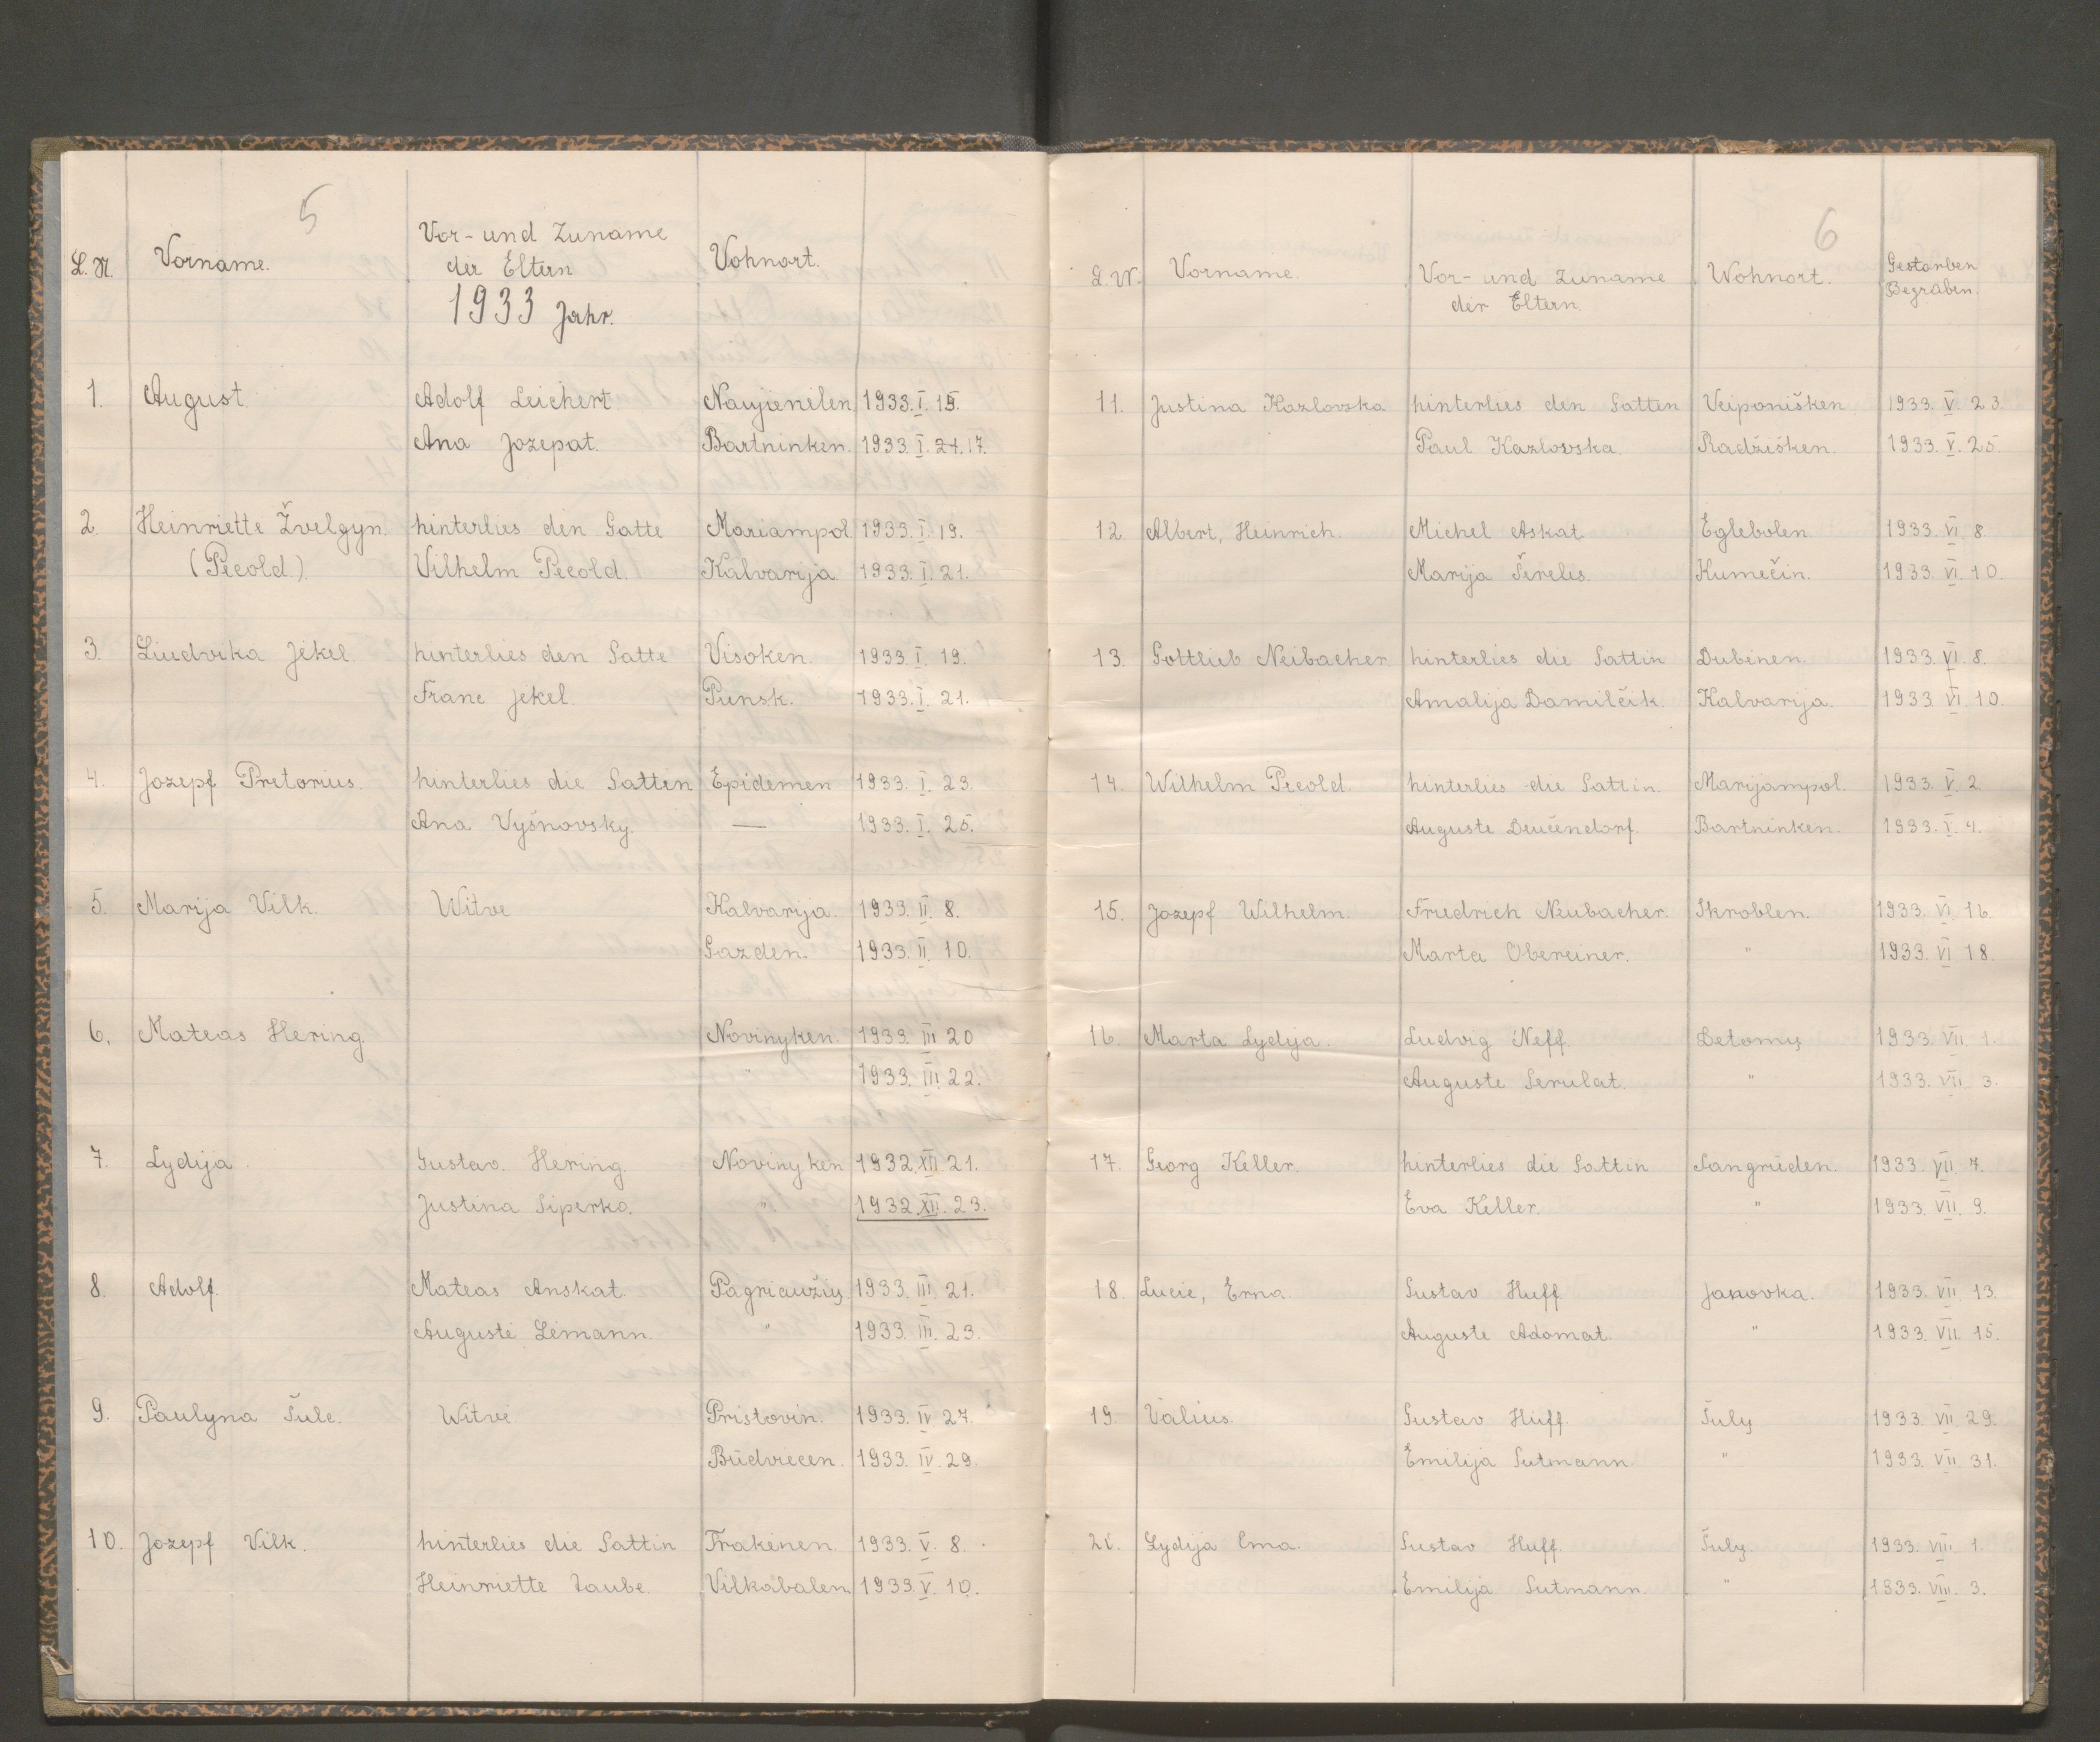 5
L. N. Vorname. Vor- und Zuname der Eltern Vohnort.
1933 Jahr.
1. August. Adolf Leichert Naujienilen 1933. I. 15.
Ana Jozepat. Bartninken. 1933. I. 17.
2. Heinriette Žvelgyn. hinterlies den Gatte Mariampol 1933. I. 19.
(Pecold.) Vilhelm Pecold. Kalvarija 1933. I. 21.
3. Liudvika Jekel. hinterlies den Gatte Visoken. 1933. I. 19.
Franc Jekel. Punsk. 1933. I. 21.
4. Jozepf Pretorius. hinterlies die Gattin Epidemen 1933. I. 23.
Ana Vyšnovsky. — 1933. I. 25.
5. Marija Vilk. Witve Kalvarija. 1933. II. 8.
Gazden. 1933. II. 10.
6. Mateas Hering. Novinyken. 1933. III 20
" 1933. III. 22.
7. Lydija. Gustav. Hering. Novinyken 1932. XII. 21.
Justina Siperko. " 1932. XII. 23.
8. Adolf. Mateas Anskat. Pagriaužių 1933. III. 21.
Auguste Lemann. " 1933. III. 23.
9. Paulyna Šule. Witve Pristovin. 1933. IV. 27.
Būdviecen. 1933. IV. 29.
10. Jozepf Vilk. hinterlies die Gattin Trakėnen. 1933. V. 8.
Heinriette Taube. Vilkabalen 1933. V. 10.
6
L. N. Vorname. Vor- und Zuname der Eltern. Wohnort. Gestorben Begraben.
11. Justina Kazlovska hinterlies den Gatten Veiponišken 1933. V. 23.
Paul Kazlovska. Radžišken. 1933. V. 25.
12. Albert, Heinrich. Michel Askat Eglebolen. 1933. VI. 8.
Marija Šireles. Kumečin. 1933. VI. 10.
13. Gottlieb Neibacher hinterlies die Gattin Dubenen. 1933. VI. 8.
Amalija Damilčik. Kalvarija. 1933. VI. 10.
14. Wilhelm Pecold hinterlies die Gattin. Marijampol. 1933. V. 2.
Auguste Deučendorf. Bartninken. 1933. V. 4.
15. Jozepf Wilhelm. Friedrich Neubacher. Skroblen. 1933. VI. 16.
Marta Obereiner. " 1933. VI. 18.
16. Marta Lydija. Ludvig Neff. Detomų 1933. VII. 1.
Auguste Serulat. " 1933. VII. 3.
17. Georg Keller. hinterlies die Gattin Sangrūden. 1933. VII. 7.
Eva Keller. " 1933. VII. 9.
18. Lucie, Erna. Gustav Huff Janovka. 1933. VII. 13.
Auguste Adomat. " 1933. VII. 15.
19. Valius. Gustav Huff. Šulų 1933. VII. 29.
Emilija Gutmann. " 1933. VII. 31.
20. Lydija Ema. Gustav Huff. Šulų. 1933. VIII. 1.
Emilija Gutmann. " 1933. VIII. 3.